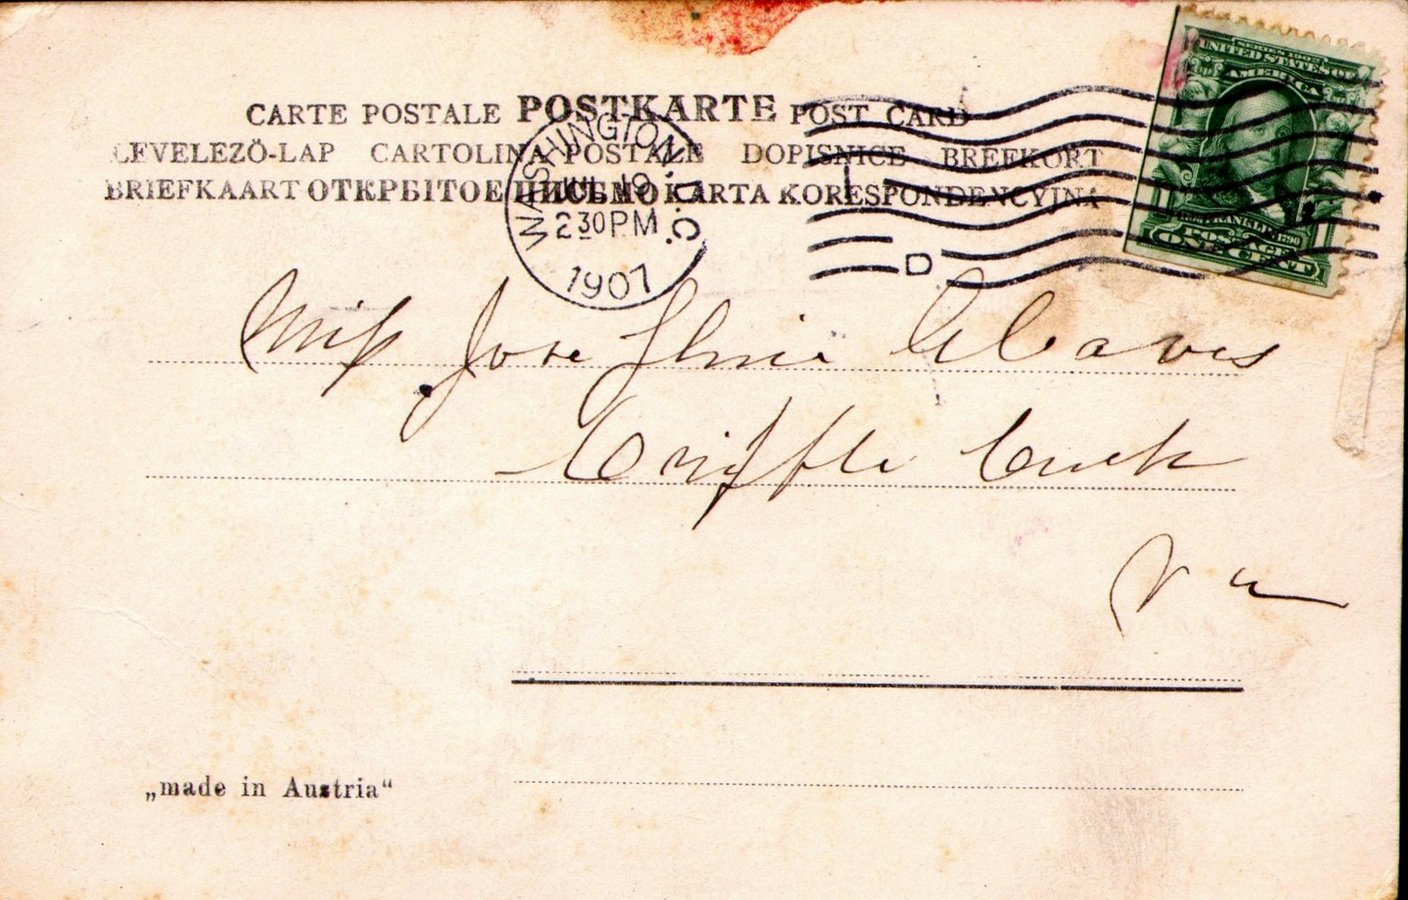 CARTE POSTALE POSTKARTE POST CARD
LEVELEZÖ-LAP CARTOLINA POSTALE DOPISNICE BREFKORT
BRIEFKAART ОТКРЫТОЕ ПИСЬМО KARTA KORESPONDENCYJNA
WASHINGTON, D.C.
JUL 19
2 30 PM
1907
D
SERIES 1902
UNITED STATES OF
AMERICA
FRANKLIN 1790
POSTAGE
ONE CENT
Miss Josephine Cleaves
Cripple Creek
Va
„made in Austria“